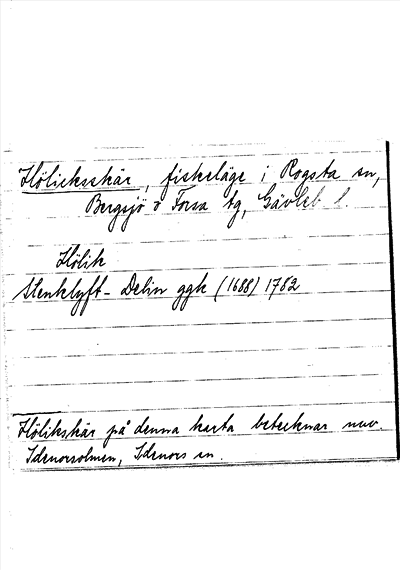 Hölicksskär, fiskeläge i Rogsta sn,
Bergsjö o Forsa tg, Gävleb l.
Hölik
Stenklyft - Delin ggk (1688) 1782
Hölikskär på denna karta betecknar nuv.
Idenorsolmen, Idenors sn.